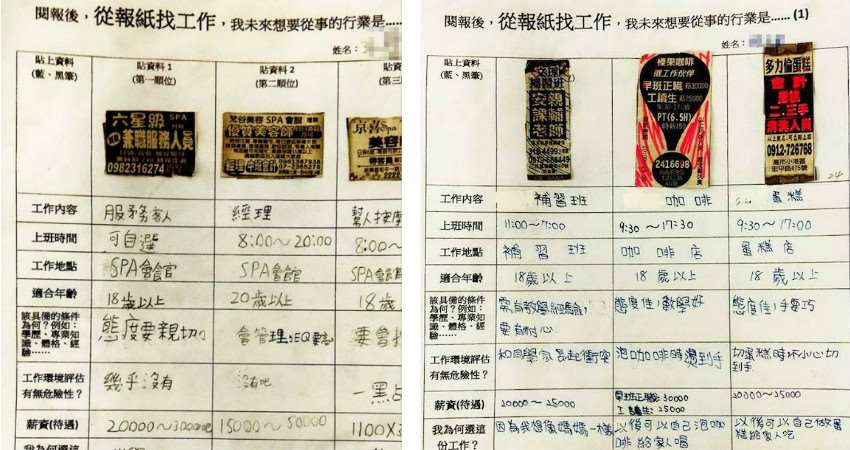 閱報後，從報紙找工作，我未來想要從事的行業是……
姓名：
貼上資料
(藍、黑筆)
貼資料 1
(第一順位)
貼資料 2
(第二順位)
(第三
六星級 SPA
兼職服務人員
0982316274
SPA 會館
優質美容師
京喜Spa
美容
工作內容 服務客人 經理 幫人按摩
上班時間 可自選 8:00～20:00 8:00～
工作地點 SPA會館 SPA會館 SPA會館
適合年齡 18歲以上 20歲以上 18歲
該具備的條件
為何？例如：
學歷、專業知
識、體格、經
驗……
態度要親切 會管理、EQ要高 要會按
工作環境評估
有無危險性？
幾乎沒有 沒有吧 一點點
薪資(待遇) 20000～30000吧 15000～50000 1100X
我為何選這
閱報後，從報紙找工作，我未來想要從事的行業是…… (1)
姓名：
貼上資料
(藍、黑筆)
文理
補習班
安親
課輔
老師
榛果咖啡
徵工作伙伴
早班正職
工讀生
PT(6.5H)
2416698
多力倫蛋糕
會計
門市
二、三手
清洗人員
0912-726768
高市小港區
宏平路475號
工作內容 補習班 咖啡 蛋糕
上班時間 11:00～7:00 9:30～17:30 9:30～17:00
工作地點 補習班 咖啡店 蛋糕店
適合年齡 18歲以上 18歲以上 18歲以上
該具備的條件
為何？例如：
學歷、專業知
識、體格、經
驗……
需有教學經驗，
要有耐心
態度佳，數學好
態度佳，手要巧
工作環境評估
有無危險性？
和同學家長起衝突
泡咖啡時燙到手
切蛋糕時不小心切
到手
薪資(待遇) 20000～25000
早班正職：30000
工讀生：25000
20000～25000
我為何選這
份工作？
因為我想像媽媽一樣
以後可以自己泡咖
啡給家人喝
以後可以自己做蛋
糕給家人吃